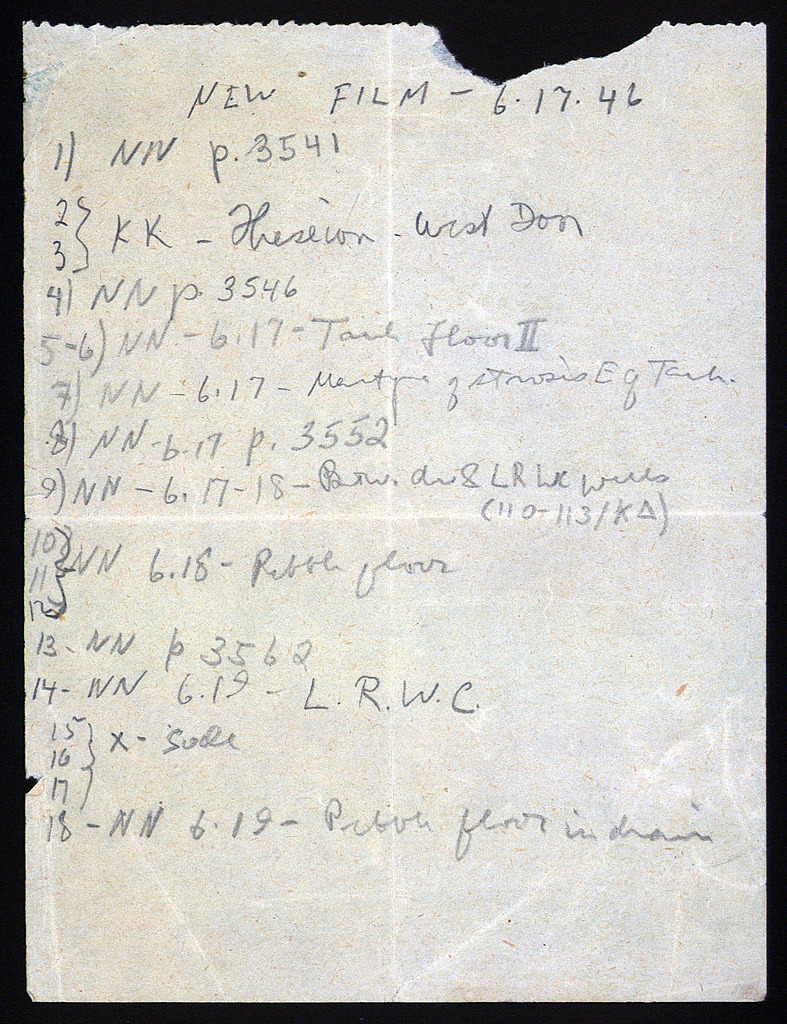 NEW FILM - 6.17.46
1) NN p. 3541
2
3} KK - Theseion - West Door
4) NN p. 3546
5-6) NN - 6.17 - Tank floor II
7) NN - 6.17 - of strosis E of Tank.
8) NN - 6.17 p. 3552
9) NN - 6.17-18 - LR
(110-113/ΚΔ)
10
11
12} NN 6.18 - Pebble floor
13 - NN p 3562
14 - NN 6.19 - L.R.W.C.
15
16} X -
17)
18 - NN 6.19 - Pebble floor in drain